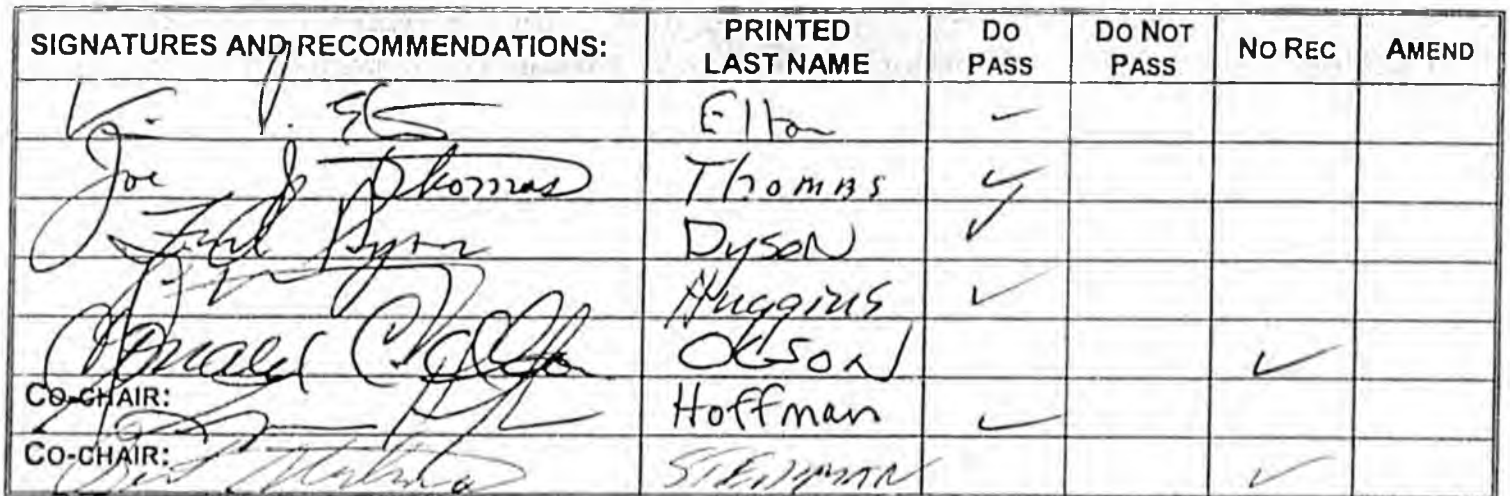 SIGNATURES AND RECOMMENDATIONS: PRINTED LAST NAME DO PASS DO NOT PASS NO REC AMEND
Elton –
Joe J Thomas Thomas ✓
Fred Dyson Dyson ✓
Huggins ✓
Donald C Olson Olson ✓
CO-CHAIR: Hoffman ✓
CO-CHAIR: STEDMAN ✓